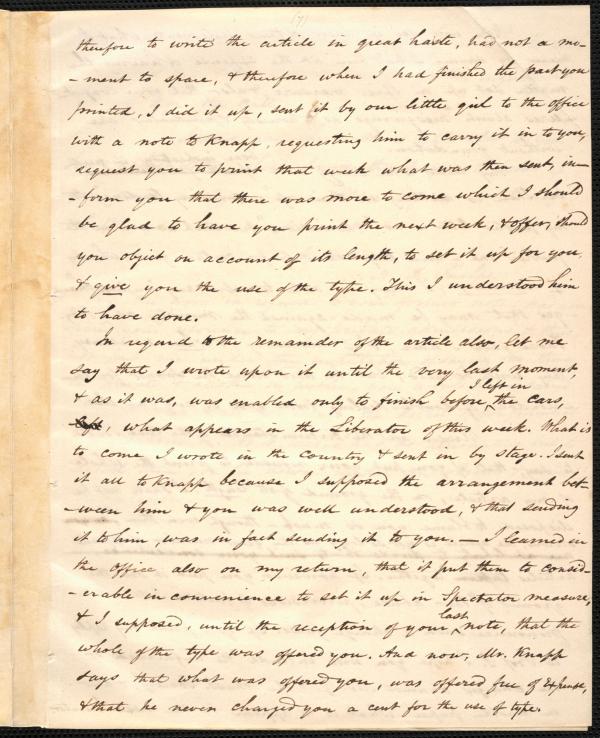 therefore to write the article in great haste, had not a mo-
-ment to spare, & therefore when I had finished the part you
printed, I did it up, sent it by our little girl to the office
with a note to Knapp, requesting him to carry it in to you,
request you to print that week what was then sent, in-
-form you that there was more to come which I should
be glad to have you print the next week, & offer, should
you object on account of its length, to set it up for you
& give you the use of the type. This I understood him
to have done.
In regard to the remainder of the article also, let me
say that I wrote upon it until the very last moment,
I left in
& as it was, was enabled only to finish before the cars,
left, what appears in the Liberator of this week. What is
to come I wrote in the country & sent in by stage. I sent
it all to Knapp because I supposed the arrangement bet-
-ween him & you was well understood, & that sending
it to him, was in fact sending it to you. — I learned in
the office also on my return, that it put them to consid-
-erable inconvenience to set it up in Spectator measure,
last
& I supposed, until the reception of your note, that the
whole of the type was offered you. And now, Mr. Knapp
says that what was offered you, was offered free of expense,
& that he never charged you a cent for the use of type.